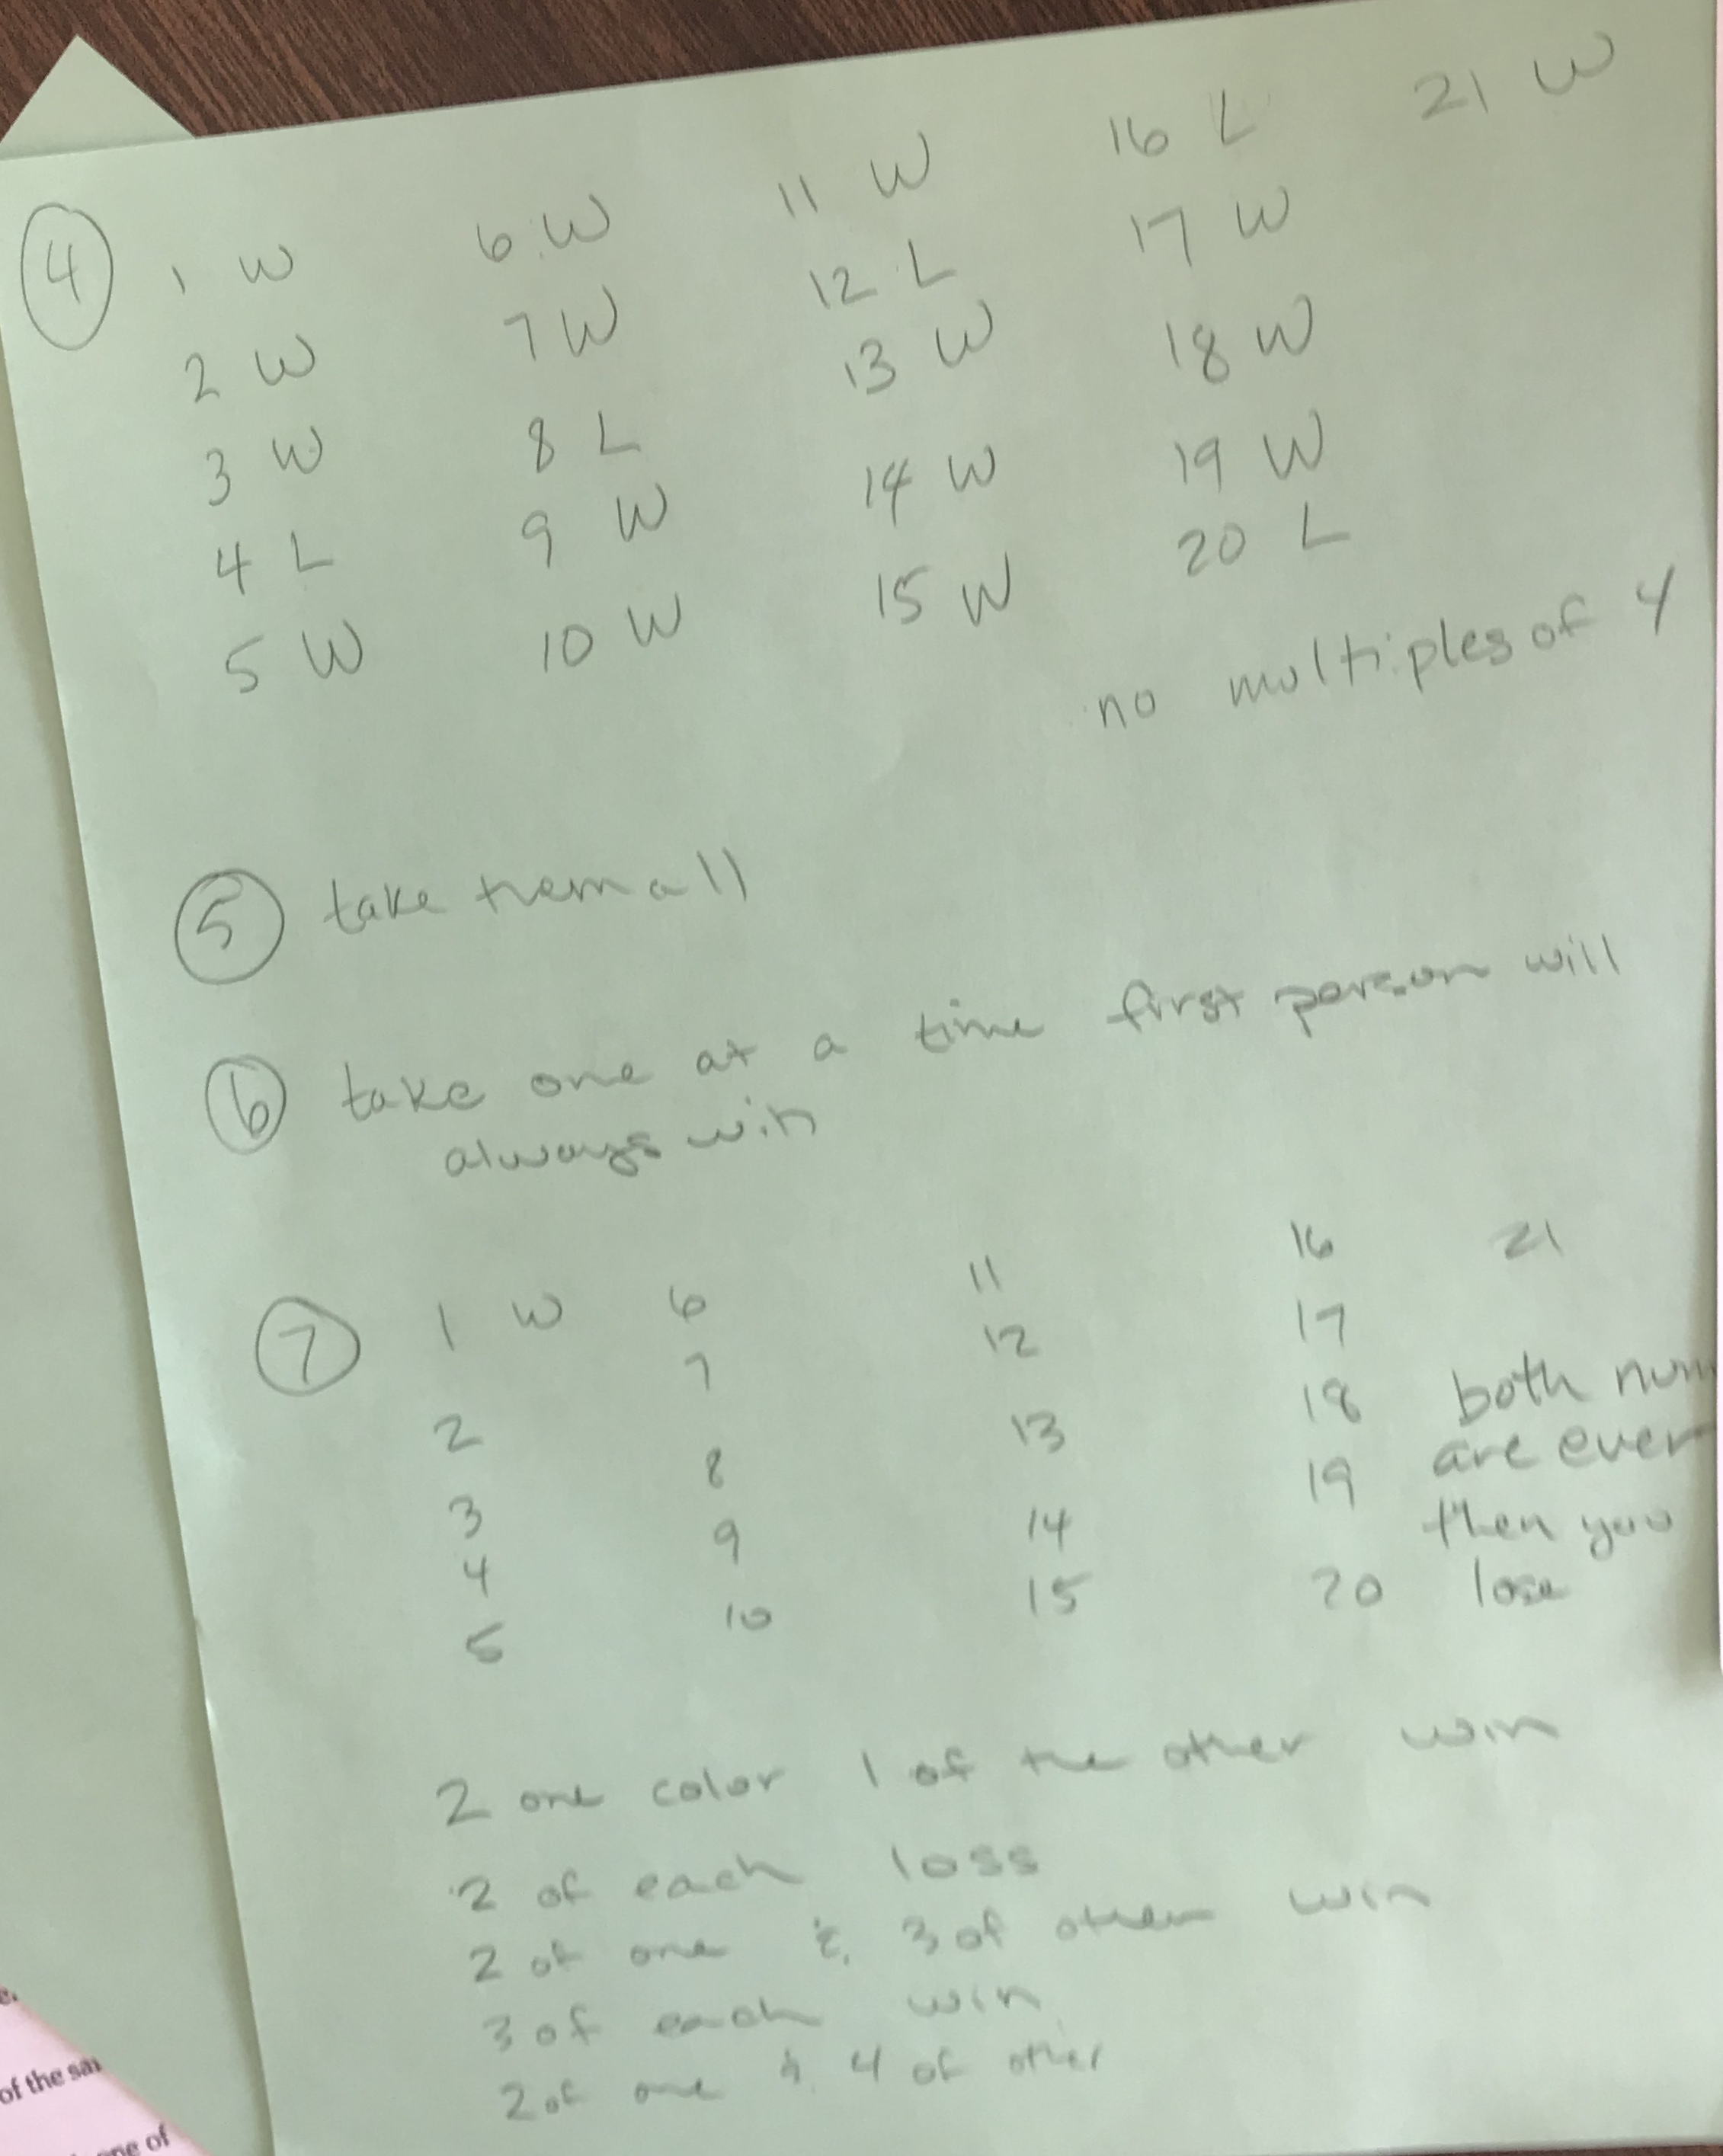 4 1 W 6 W 11 W 16 L 21 W
2 W 7 W 12 L 17 W
3 W 8 L 13 W 18 W
4 L 9 W 14 W 19 W
5 W 10 W 15 W 20 L
no multiples of 4
5 take them all
6 take one at a time first person will
always win
7 1 W 6 11 16 21
2 7 12 17
3 8 13 18 both num
4 9 14 19 are even
5 10 15 20 then you
lose
2 one color 1 of the other win
2 of each loss
2 of one & 3 of other win
3 of each win
2 of one & 4 of other
of the sai
one of